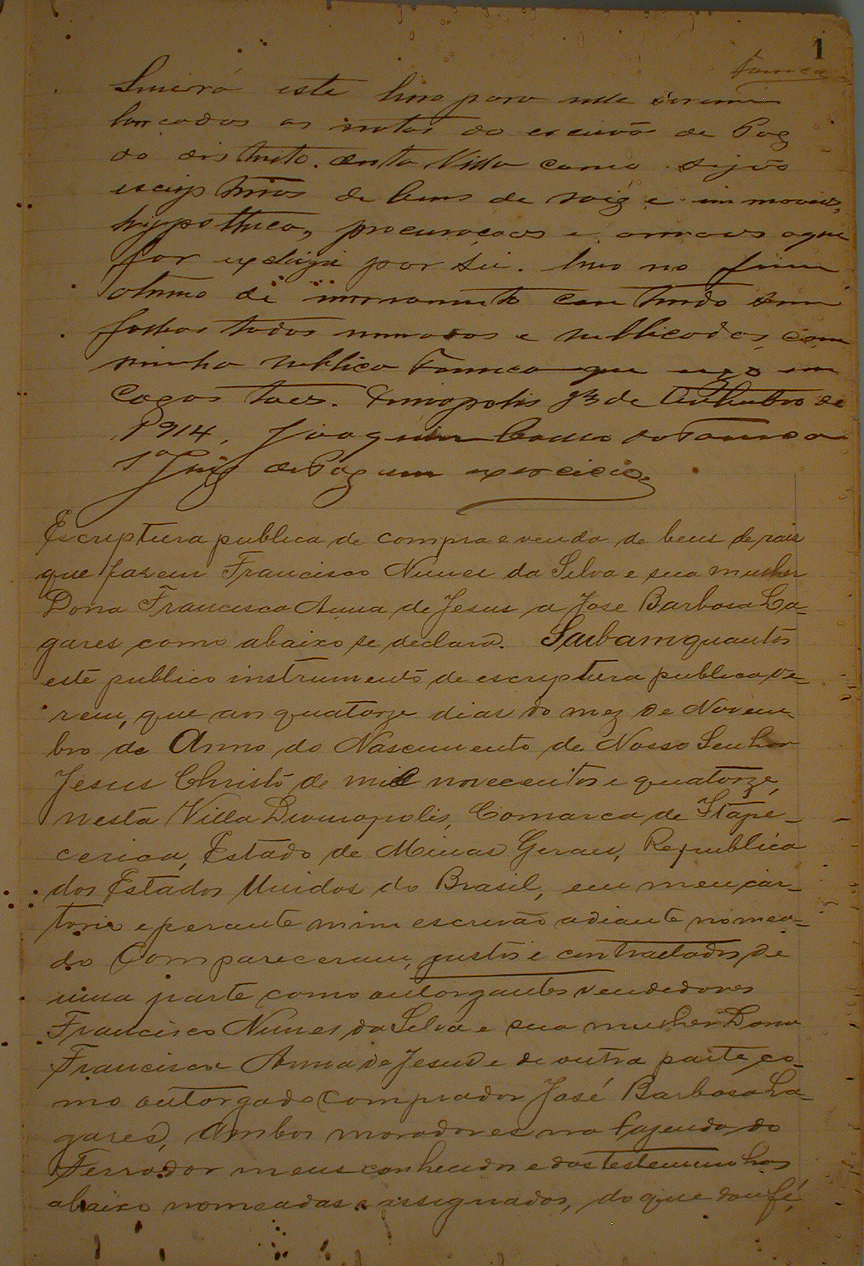 1
Fonseca
Servirá este livro para nelle serem
lançados as notas do escrivão de Paz
do districto desta Villa como sejão
escripturas de bens de raiz e immoveis,
hypotheca, procurações e
for por lei. livro no fim
o termo de com tendo
folhas todas numeradas e rubricadas com
minha rubrica Fonseca que uso em
casos taes. Divinopolis de de
1914. Joaquim da Fonseca
1º Juiz de Paz em exercicio
Escriptura publica de compra e venda de bens de rais
que fasem Francisco Nunes da Silva e sua mulher
Dona Francisca Anna de Jesus a José Barbosa La-
gares como abaixo se declara. Saibam quantos
este publico instrumento de escriptura publica vi-
rem, que aos quatorze dias do mez de Novem-
bro do Anno do Nascimento de Nosso Senhor
Jesus Christo de mil novecentos e quatorze,
nesta Villa Divinopolis, Comarca de Itape-
cerica, Estado de Minas Geraes, Republica
dos Estados Unidos do Brasil, em meu car-
torio e perante mim escrivão adiante nomea-
do Compareceram, justos e contractados, de
uma parte como outorgantes vendedores
Francisco Nunes da Silva e sua mulher Dona
Francisca Anna de Jesus e de outra parte, co-
mo outorgado comprador José Barbosa La-
gares, ambos moradores na fazenda do
Ferrador meus conhecidos e das testemunhas
abaixo nomeadas e assignadas, do que dou fé,